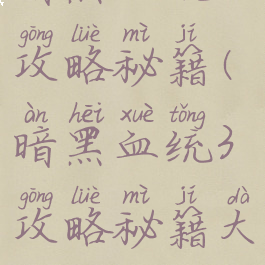 gōng lüè mì jí
攻略秘籍(
àn hēi xuè tǒng
暗黑血统3
gōng lüè mì jí dà
攻略秘籍大